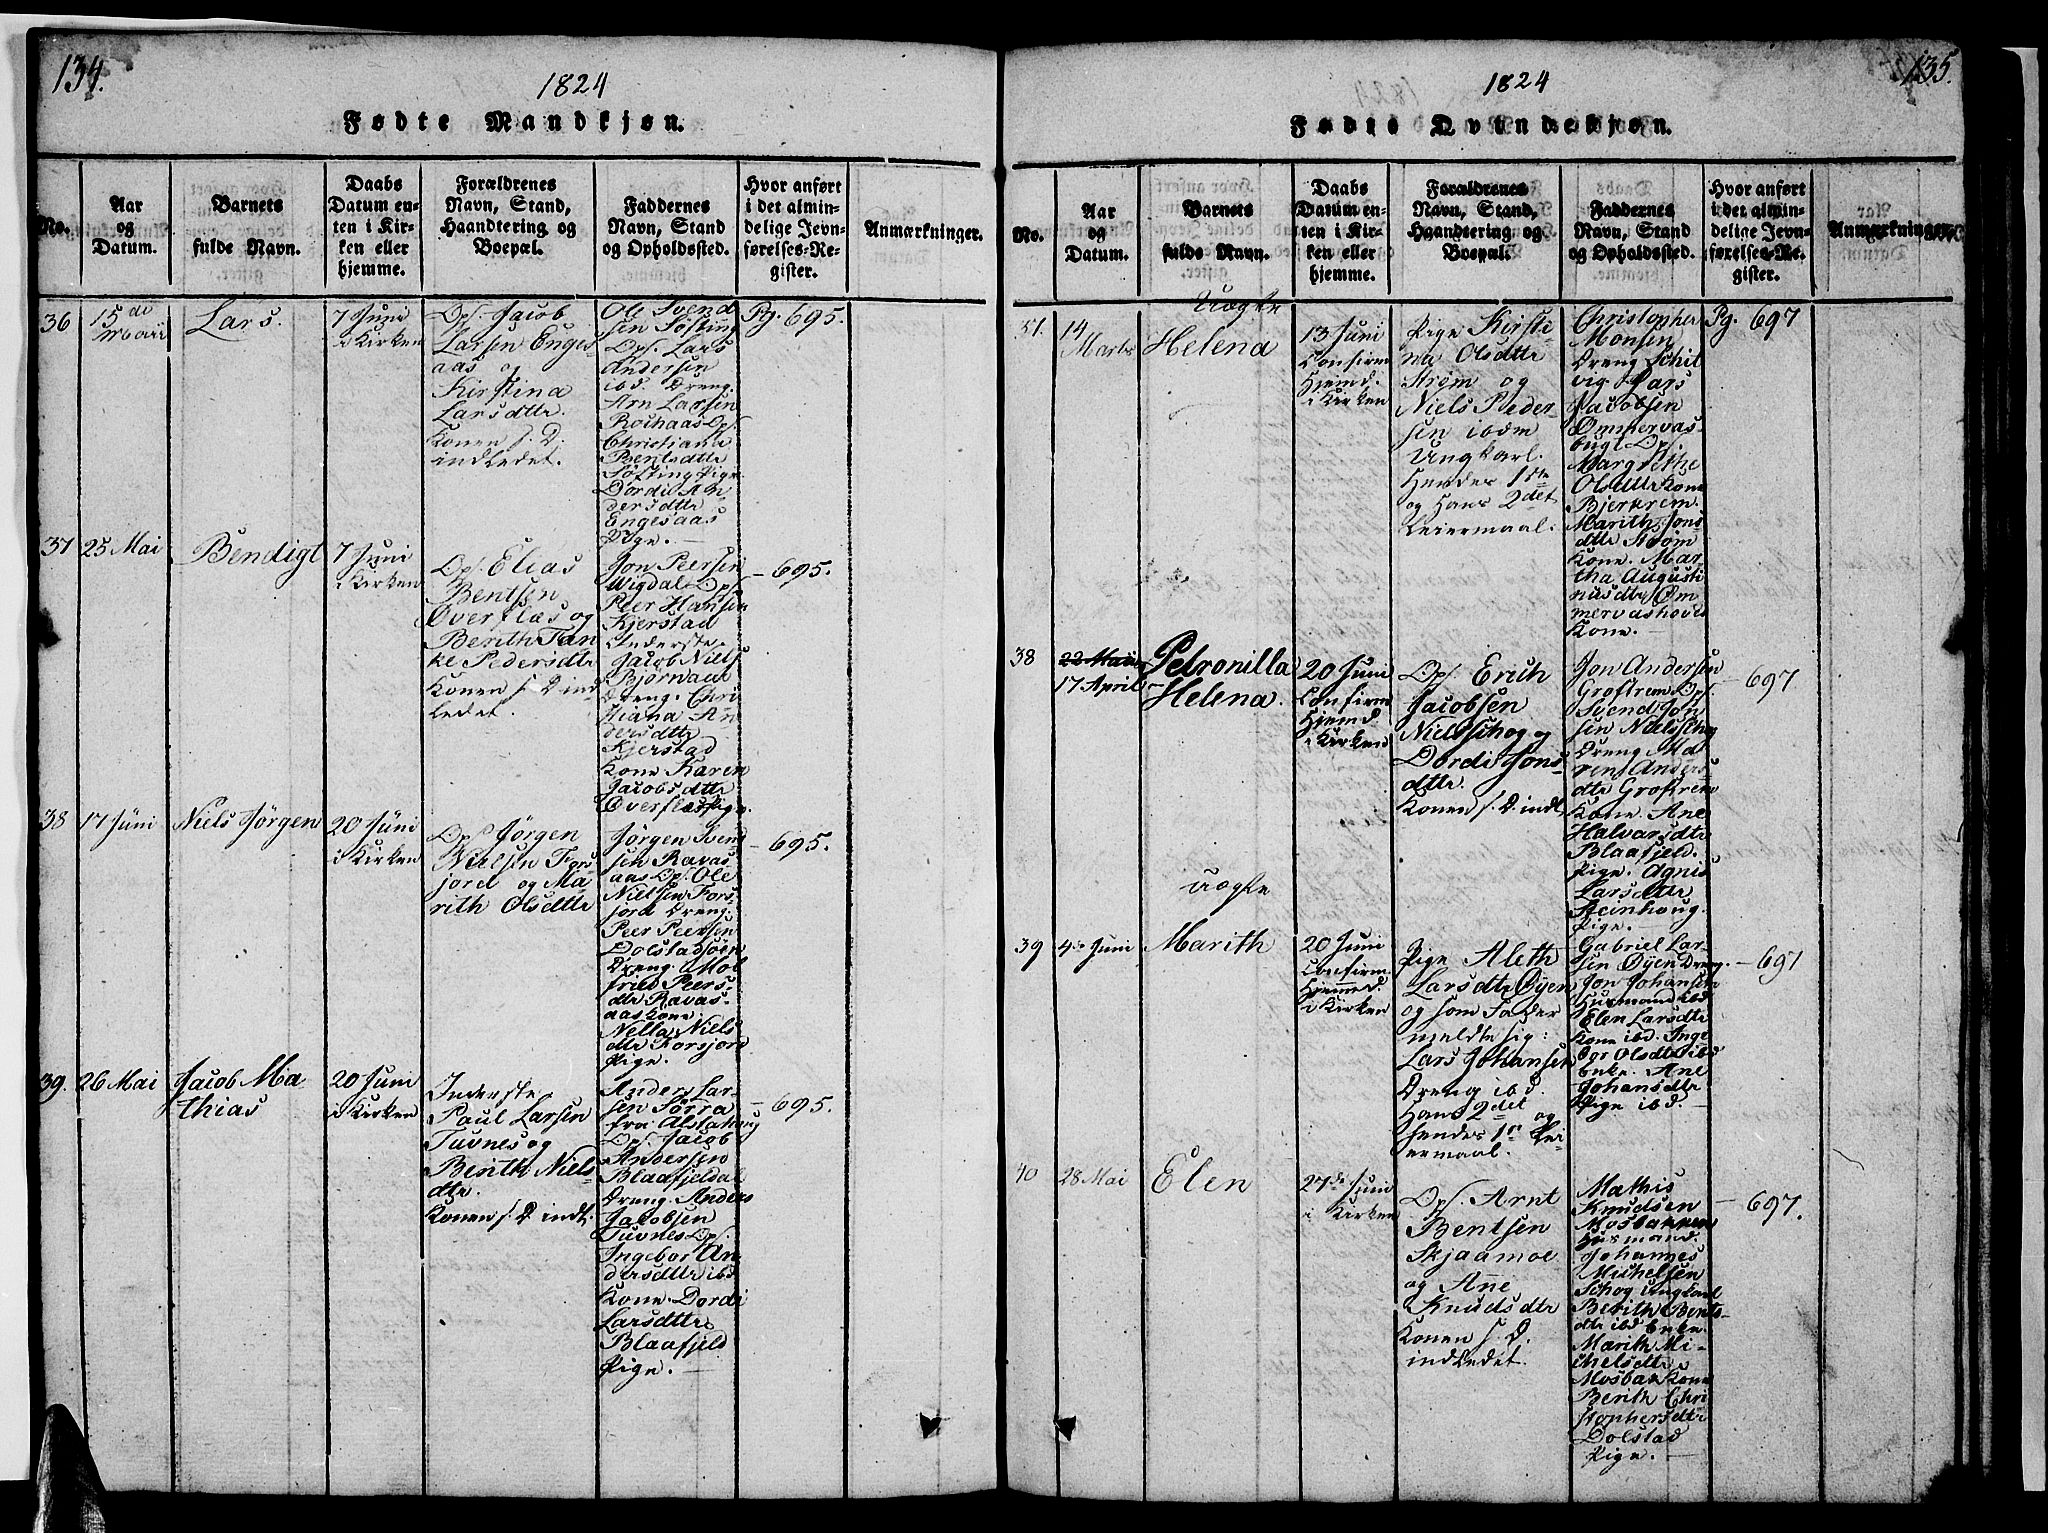 134.
1824
Fødte Mandkjøn.
No.
Aar
og
Datum.
Barnets
fulde Navn.
Daabs
Datum en-
ten i Kir-
ken eller
hjemme.
Forældrenes
Navn, Stand,
Haandtering og
Boepæl.
Faddernes
Navn, Stand
og Opholdssted.
Hvor anført
i det almin-
delige Jevn-
førelses-Re-
gister.
Anmærkninger.
36
15de
Maii
Lars.
7 Juni
i Kirken
Ops. Jacob
Larsen Enges-
aas og
Kirstina
Larsdttr.
Konen f. D.
indledet.
Ole Svend
sen Søfting
Ops. Lars
Andersen
ibd. Dreng.
Arn Larsen
Roihaas Ops.
Christiana
Bentsdttr
Søfting Pige
Dordi An
dersdttr
Engesaas
Pige.
Pg. 695.
37
25 Mai
Bendigt
7 Juni
i Kirken
Ops. Elias
Bentsen
Overflæs og
Berith Tan
ke Pedersdtr
Konen f. D ind
ledet.
Jon Peersen
Wigdal Ops.
Peer Hansen
Kjerstad
Inderste
Jacob Niels
Bjørnaae
Dreng. Chri
stiana An
dersdttr.
Kjerstad
Kone Karen
Jacobsdttr
Overflæs Pige.
– 695.
38
17 Juni
Niels Jørgen
20 Juni
i Kirken
Ops Jørgen
Nielsen Fors
jord og Ma
rith Olsdttr
Jørgen Svend
sen Ravas
aas Ops. Ole
Nielsen Fors
jord Dreng.
Peer Peersen
Dolstadsøen
Dreng. Mol
fried Peers
dtr Ravas-
aas Kone.
Nella Niels
dtr Forsjord
Pige.
– 695.
39.
26 Mai
Jacob Ma
thias
20 Juni
i Kirken
Inderste
Paul Larsen
Tuvnes og
Berith Niels
dtr.
Konen f. D indl.
Anders Lar-
sen Sørra
fra Alstahoug
Ops. Jacob
Andersen
Blaafjeldal
Dreng. Anders
Jacobsen
Tuvnes Ops.
Ingebor An
dersdttr ibd
Kone. Dordi
Larsdttr
Blaafjeld
Pige.
– 695.
135.
1824
Fødte Qvindekjøn.
No.
Aar
og
Datum.
Barnets
fulde Navn.
Daabs
Datum en-
ten i Kir-
ken eller
hjemme.
Forældrenes
Navn, Stand,
Haandtering og
Boepæl.
Faddernes
Navn, Stand
og Opholdssted.
Hvor anført
i det almin-
delige Jevn-
førelses-Re-
gister.
Anmærkninger.
37.
14
Marts
Uægte
Helena
13 Juni
Confirm
Hjemd.
i Kirken
Pige Kirsti
na Olsdttr
Strøm og
Niels Peder
sen ibdm
Ungkarl.
Hendes 1ste
og Hans 2det
Leiermaal.
Christopher
Monsen
Dreng Schil
vig. Lars
Jacobsen
Ommervas-
bugt Ops.
Margrethe
Olsdttr Kone
Bjerkrem.
Marith Jons
dtr Strøm
Kone. Mar-
tha Augusti
nusdtr Om
mervashovd
Kone.
Pg. 697
38
22 Maii
17 April
Petronilla
Helena.
20 Juni
Confirm
Hjemd
i Kirken
Ops. Erich
Jacobsen
Nielsschog og
Dordi Jons-
dttr.
Konen f. D. indl.
Jon Andersen
Groftrem Ops.
Svend Jon
sen Nielsschog
Dreng Ma
ren Anders-
dtr Groftrem
Kone. Ane
Halvarsdtr
Blaafjeld.
Pige. Agnis
Larsdttr
Steinhoug.
Pige.
– 697.
39
4de Juni
uægte
Marith
20 Juni
Confirm.
Hjemmed.
i Kirken
Pige Aleth
Larsdtr Øyen
og som Fader
meldte sig:
Lars Johansen
Dreng ibd.
Hans 2det og
hendes 1ste Lei
ermaal.
Gabriel Lar-
sen Øyen Dreng.
Jon Johansen
Husmand ibd.
Elen Larsdtr
Kone ibd. Inge
bor Olsdttr ibd
Enke. Ane
Johansdtr
Pige ibd.
– 697
40
28 Mai
Elen
27de Juni
i Kirken
Ops. Arnt
Bentsen
Skjaamoe
og Ane
Knudsdtr
Konen f. D.
indledet.
Mathis
Knudsen
Mosbakken
Husmand.
Johannes
Michelsen
Schog ungkarl
Berith Bents-
dtr ibd Enke.
Marith Mi-
chelsdtr
Mosbak Kone
Berith Chri
stophersdtr
Dolstad
Pige.
– 697.